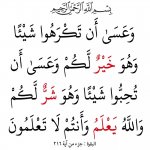 بِسْمِ اللَّهِ الرَّحْمَٰنِ الرَّحِيمِ
وَعَسَىٰ أَن تَكْرَهُوا شَيْئًا
وَهُوَ خَيْرٌ لَّكُمْ
وَعَسَىٰ أَن
تُحِبُّوا شَيْئًا وَهُوَ شَرٌّ لَّكُمْ
وَاللَّهُ يَعْلَمُ وَأَنتُمْ لَا تَعْلَمُونَ
البقرة : جزء من آية ٢١٦